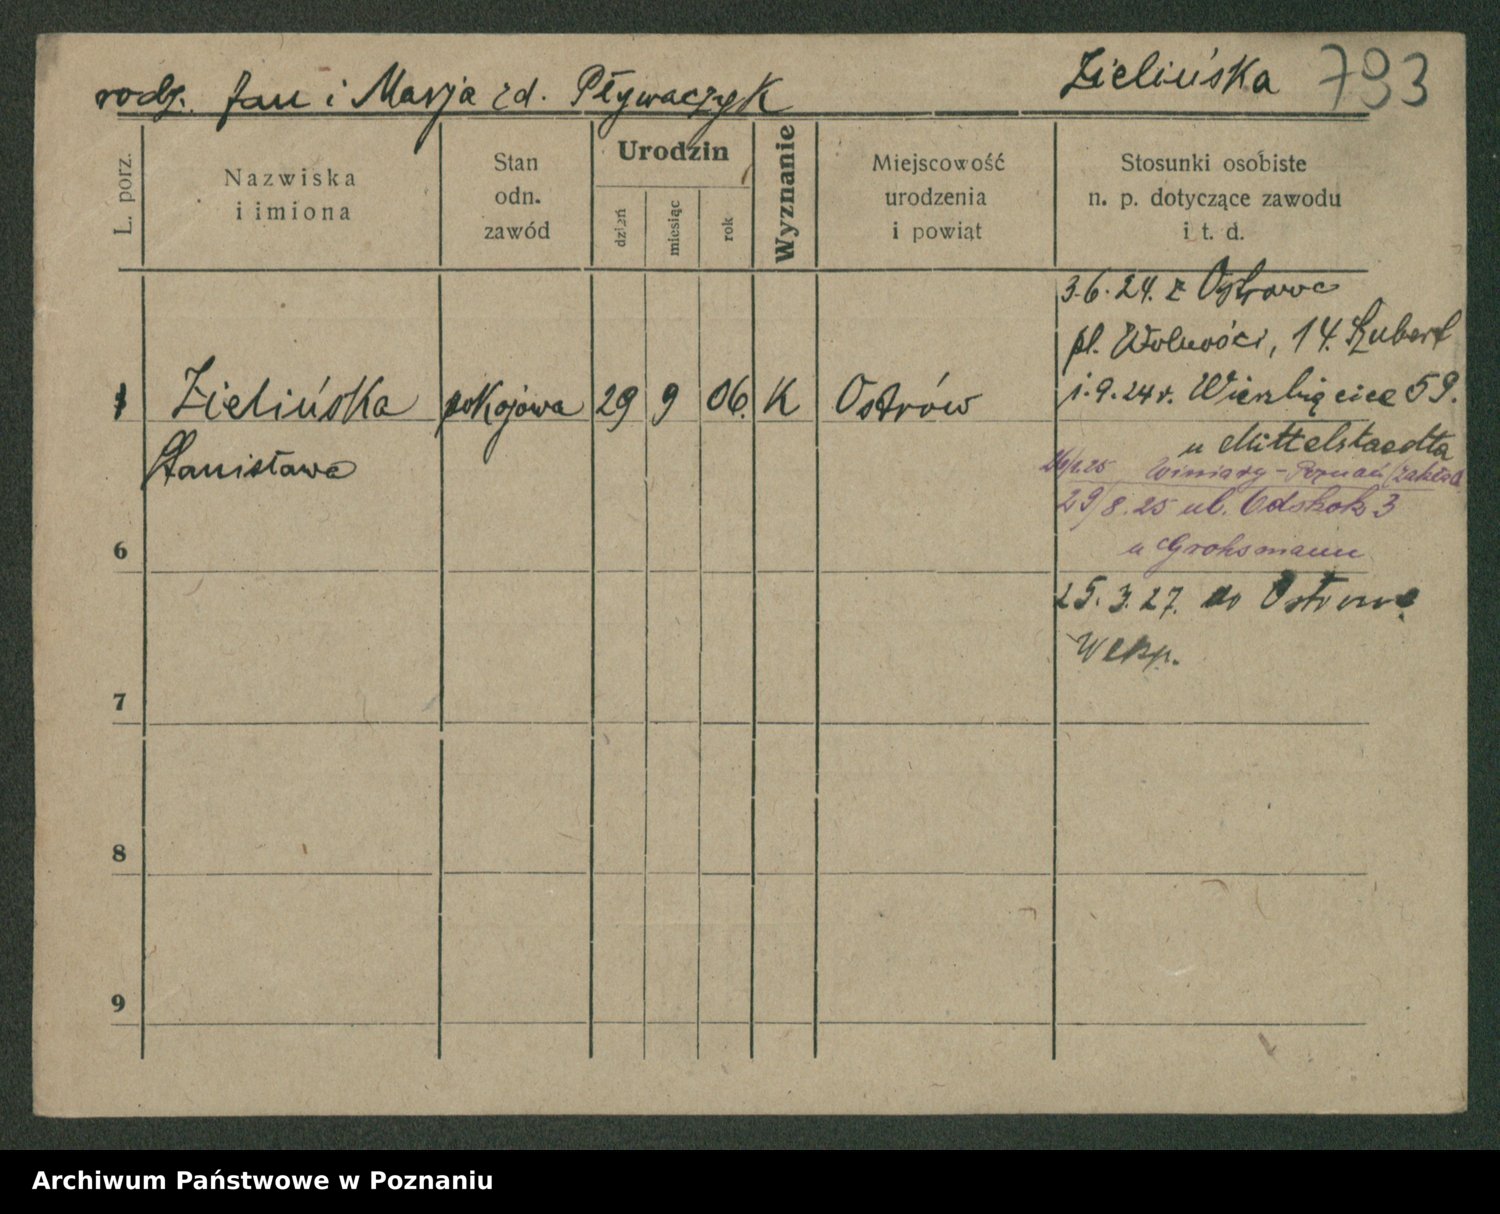 Zielińska 793
rodz. Jan i Marja zd. Pływaczyk
L. porz.
Nazwiska
i imiona
Stan
odn.
zawód
Urodzin
dzień
miesiąc
rok
Wyznanie
Miejscowość
urodzenia
i powiat
Stosunki osobiste
n. p. dotyczące zawodu
i t. d.
3.6.24. z Ostrowa
pl. Wolności, 14. Szubert
1.9.24 r. Wierzbięcice 59.
1 Zielińska pokojowa 29 9 06. K Ostrów
Stanisława
u Mittelstaedta
25 Winiary - Poznań
29/8.25 ul. Odskok 3
u Groksmann
6
25.3.27. do Ostrowa
Wlkp.
7
8
9
Archiwum Państwowe w Poznaniu